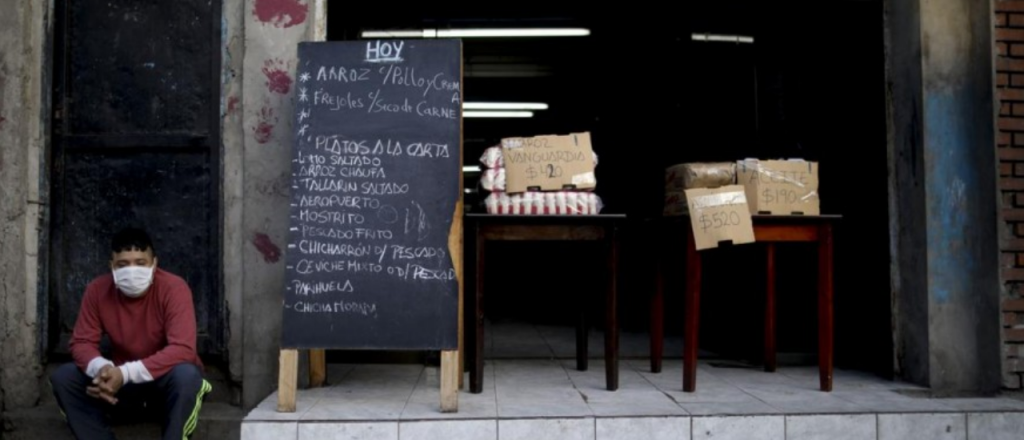 HOY
* ARROZ c/Pollo y Crem
A
* FREJOLES c/Seco de CARNE
*
*
PLATOS A LA CARTA
- LOMO SALTADO
- ARROZ CHAUFA
- TALLARIN SALTADO
- AEROPUERTO
- MOSTRITO
- PESCADO FRITO
- CHICHARRÓN D/ PESCADO
- CEVICHE MIXTO O D/ PESCAD
- PARIHUELA
- CHICHA MORADA
ARROZ
VANGUARDIA
$420
$520
$190